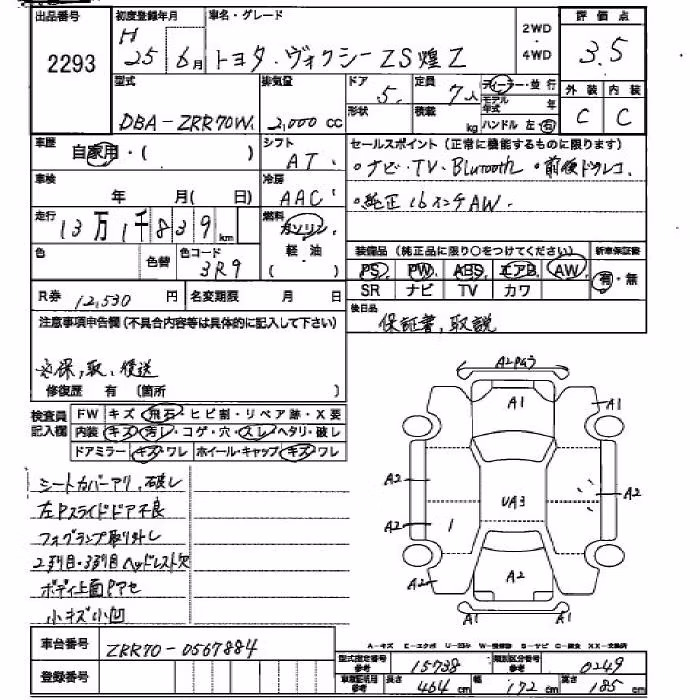 出品番号 初度登録年月 車名・グレード 2WD・4WD 評価点
2293 H 25 6月 トヨタ・ヴォクシー ZS煌Z 3.5
型式 排気量 ドア 定員 ディーラー・並行 外装 内装
DBA-ZRR70W 2,000 cc 5 7人 モデル年式 年 C C
形状 積載 kg ハンドル 左・右
車歴 自家用・( ) シフト AT セールスポイント (正常に機能するものに限ります)
・ナビ・TV・Blutooth ・前後ドラレコ
車検 年 月( 日) 冷房 AAC ・純正16インチAW.
走行 13万1千839km 燃料 ガソリン 軽油 ( )
装備品 (純正品に限り○をつけてください) 新車保証書
色 色替 色コード 3R9 PS PW ABS エアB AW 有・無
SR ナビ TV カワ
R券 12,530円 名変期限 月 日 後日品
保証書,取説
注意事項申告欄 (不具合内容等は具体的に記入して下さい)
保,取,後送
修復歴 有 (箇所 )
検査員記入欄 FW キズ・飛石・ヒビ割・リペア跡・X要
内装 キズ・汚レ・コゲ・穴・スレ・ヘタリ・破レ
ドアミラー キズ・ワレ ホイール・キャップ キズ・ワレ
シートカバーアリ,破レ
左Pスライドドア不良
フォグランプ取り外し
2列目・3列目ヘッドレスト欠
ボディ上面Pアセ
小キズ小凹
A2PQ3
A1 A1
A2 A2
UA3
A2 1
A2 A2
A1 A1
車台番号 ZRR70-0567884
A-キズ E-エクボ
登録番号
型式指定番号 参考 15738 類別区分番号 参考 0249
車検証明用 参考 長さ 464 cm 幅 172 cm 高さ 185 cm